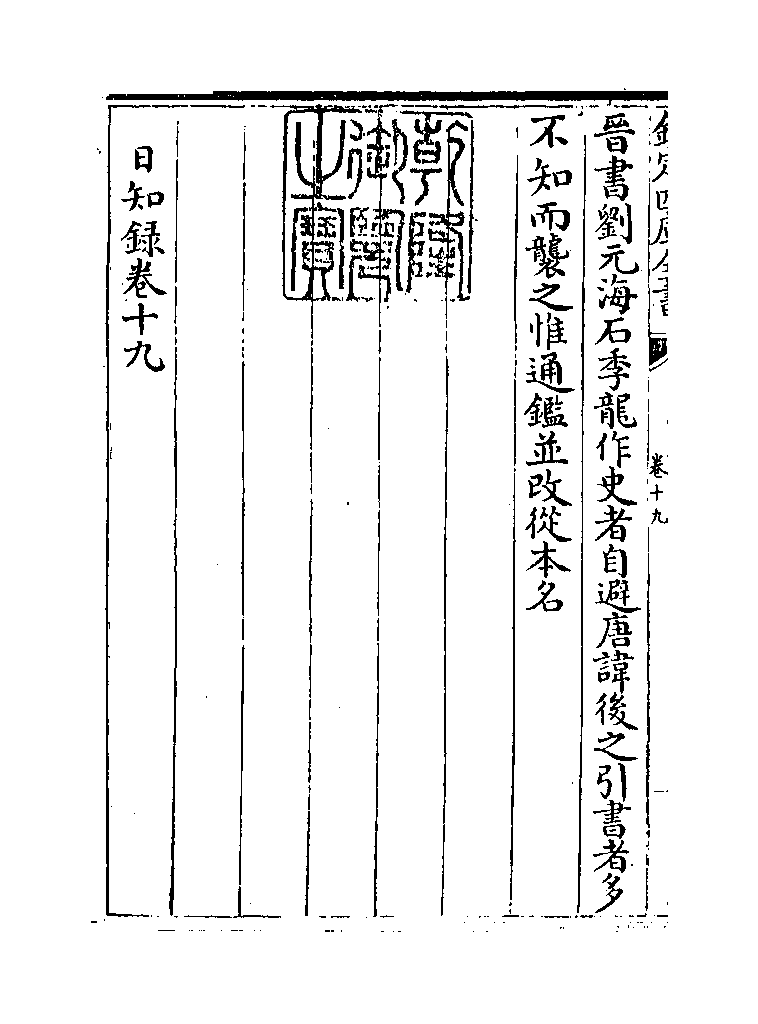 欽定四庫全書
卷十九
晉書劉元海石季龍作史者自避唐諱後之引書者多
不知而襲之惟通鑑並改從本名
乾隆
御覽
之寶
日知録卷十九